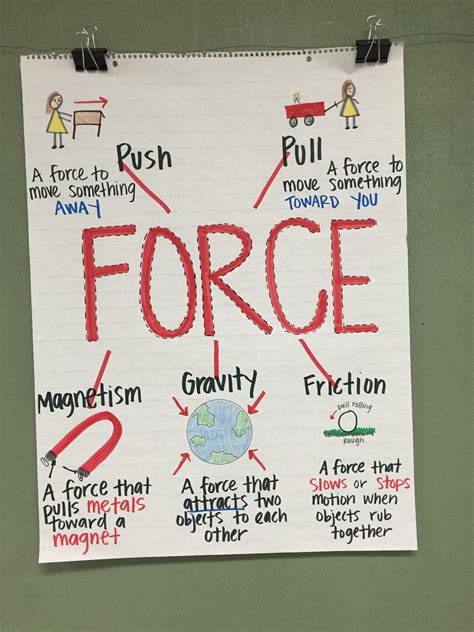 Push
A force to
move something
AWAY
Pull
A force to
move something
TOWARD YOU
FORCE
Magnetism
A force that
pulls metals
toward a
magnet
Gravity
A force that
attracts two
objects to each
other
Friction
ball rolling
rough
A force that
SLOWS or STOPS
motion when
objects rub
together